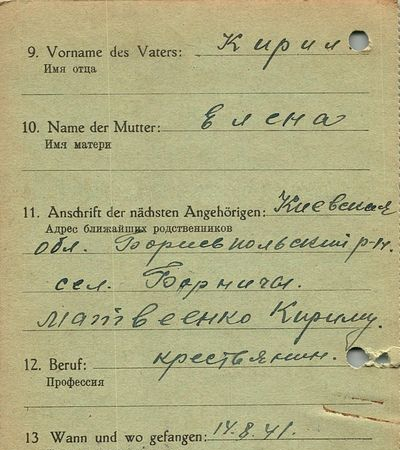 9. Vorname des Vaters: Кирил
Имя отца
10. Name der Mutter: Елена
Имя матери
11. Anschrift der nächsten Angehörigen: Киевская
Адрес ближайших родственников
обл. Бориспольский р-н.
сел. Борничи.
Матвеенко Кирилу.
12. Beruf: крестьянин.
Профессия
13 Wann und wo gefangen: 14.8.41.